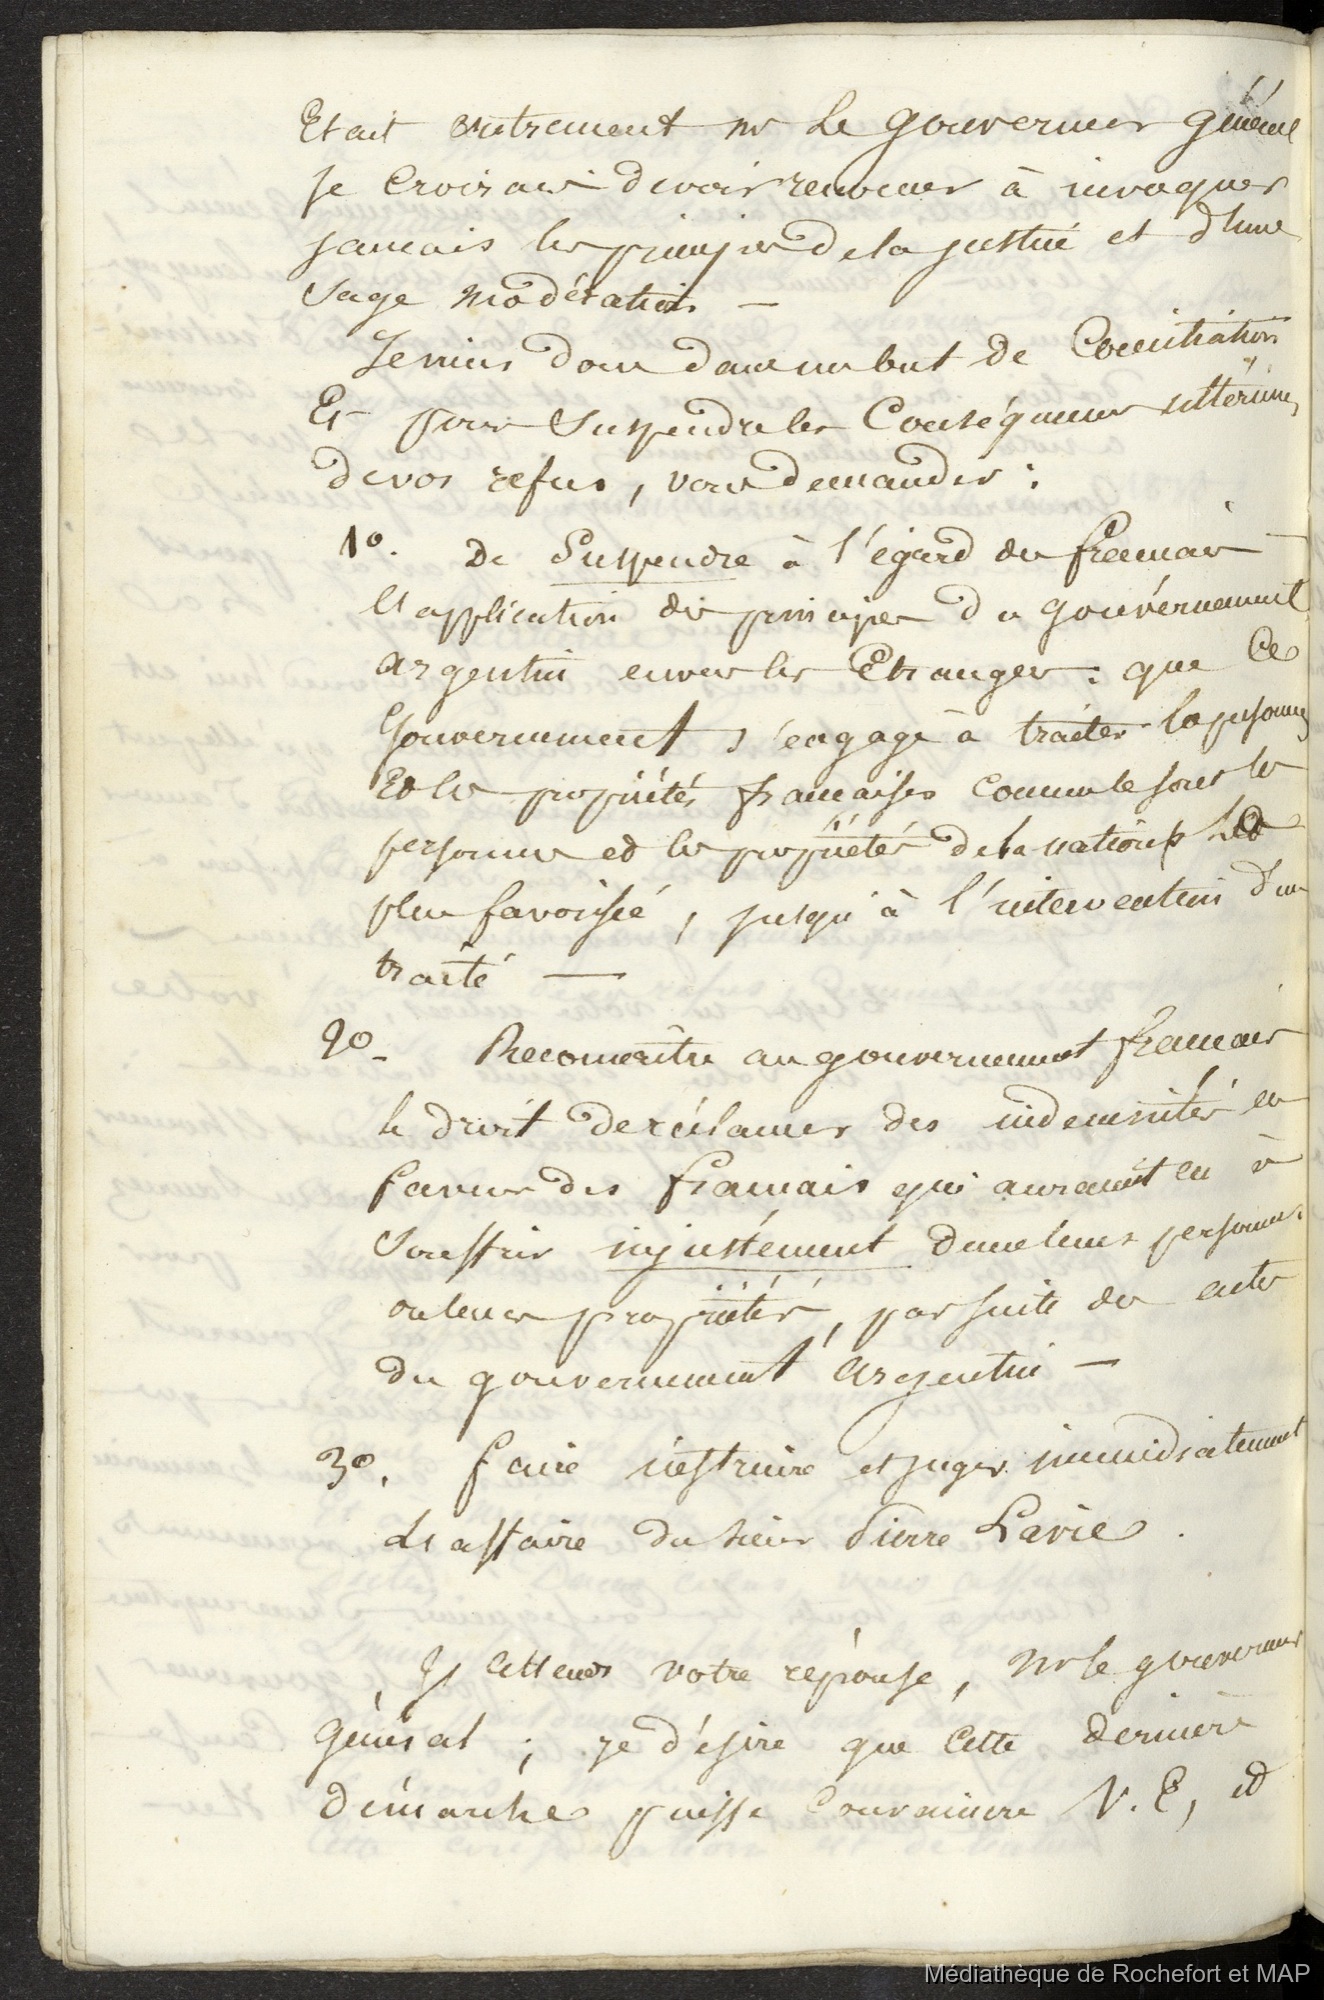 Etait autrement mr Le gouverneur général
je Croirais devoir renoncer à invoquer
jamais les principes de la justice et d'une
Sage modération —
Je viens donc dans un but de Conciliation
Et pour Suspendre les Conséquences ultérieures
de vos refus, vous demander :
1o. De Suspendre à l'égard des français
L'application des principes du gouvérnement
argentin envers les Etrangers : que Ce
Gouvernement s'engage à traiter les personnes
Et les propriétés françaises comme le sont les
personnes et les propriétés de la nation la
plus favorisée, jusqu'à l'intervention d'un
traité —
2o - Reconnaître au gouvernement français
le droit de réclamer des indemnités en
faveur des français qui auraient eu à
Souffrir injustement dans leurs personnes
ou leurs propriétés, par suite des actes
du gouvernement argentin —
3o. faire instruire et juger immédiatement
L'affaire du Sieur Pierre Lavie.
J'attends votre réponse, Mr le gouverneur
Général ; je désire que cette dernière
démarche puisse Convaincre V. E, et
Médiathèque de Rochefort et MAP